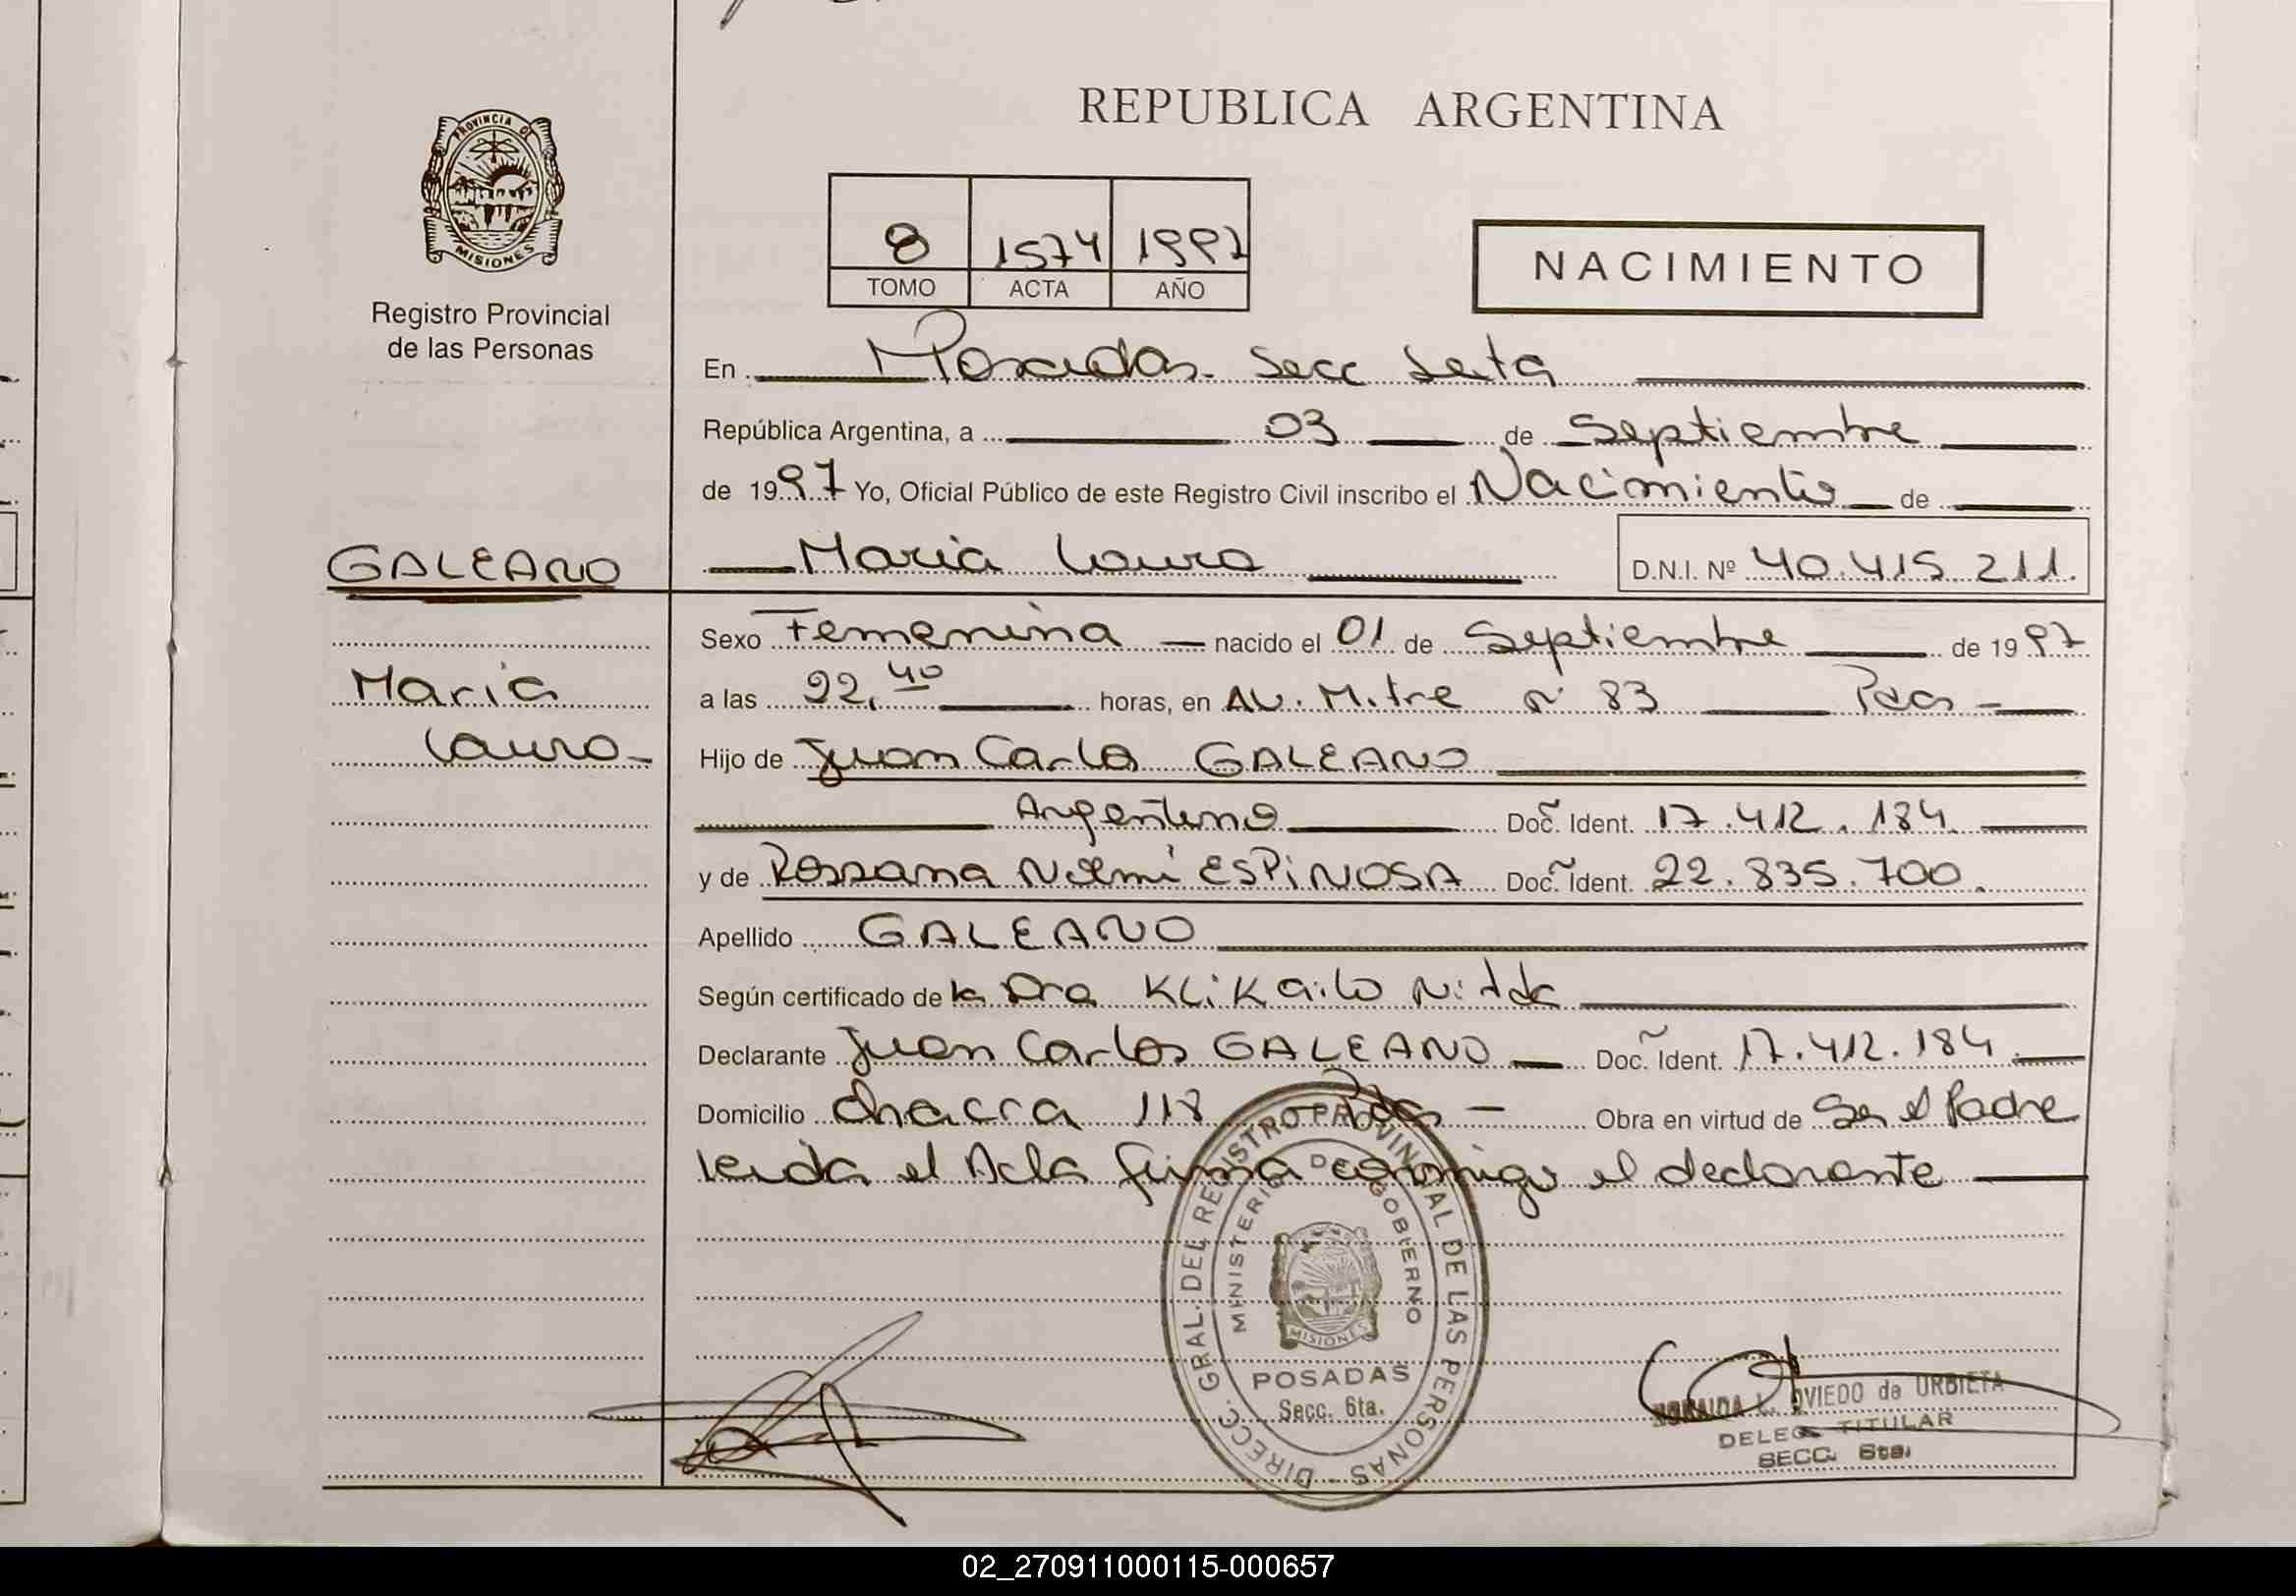 REPUBLICA ARGENTINA
PROVINCIA DE
MISIONES
Registro Provincial
de las Personas
8 1574 1997
TOMO ACTA AÑO
NACIMIENTO
En Posadas Secc Sexta
República Argentina, a 03 de Septiembre
de 1997 Yo, Oficial Público de este Registro Civil inscribo el Nacimiento de
GALEANO
Maria Laura D.N.I. Nº 40.415.211.
Sexo Femenina nacido el 01 de Septiembre de 1997
Maria
a las 22,40 horas, en AV. Mitre Nº 83 Pdas
Laura
Hijo de Juan Carlos GALEANO
Argentino Doc. Ident. 17.412.184
y de Rossana Noemi ESPINOSA Doc. Ident. 22.835.700.
Apellido GALEANO
Según certificado de la Dra KLiKailo Nilda
Declarante Juan Carlos GALEANO Doc. Ident. 17.412.184
Domicilio chacra 118 Pdas Obra en virtud de Ser el Padre
Leida el Acta firma conmigo el declarante
DIRECC. GRAL. DEL REGISTRO PROVINCIAL DE LAS PERSONAS
MINISTERIO DE GOBIERNO
MISIONES
POSADAS
Secc. 6ta.
L. OVIEDO de URBIETA
DELEG. TITULAR
SECC. 6ta.
02_270911000115-000657